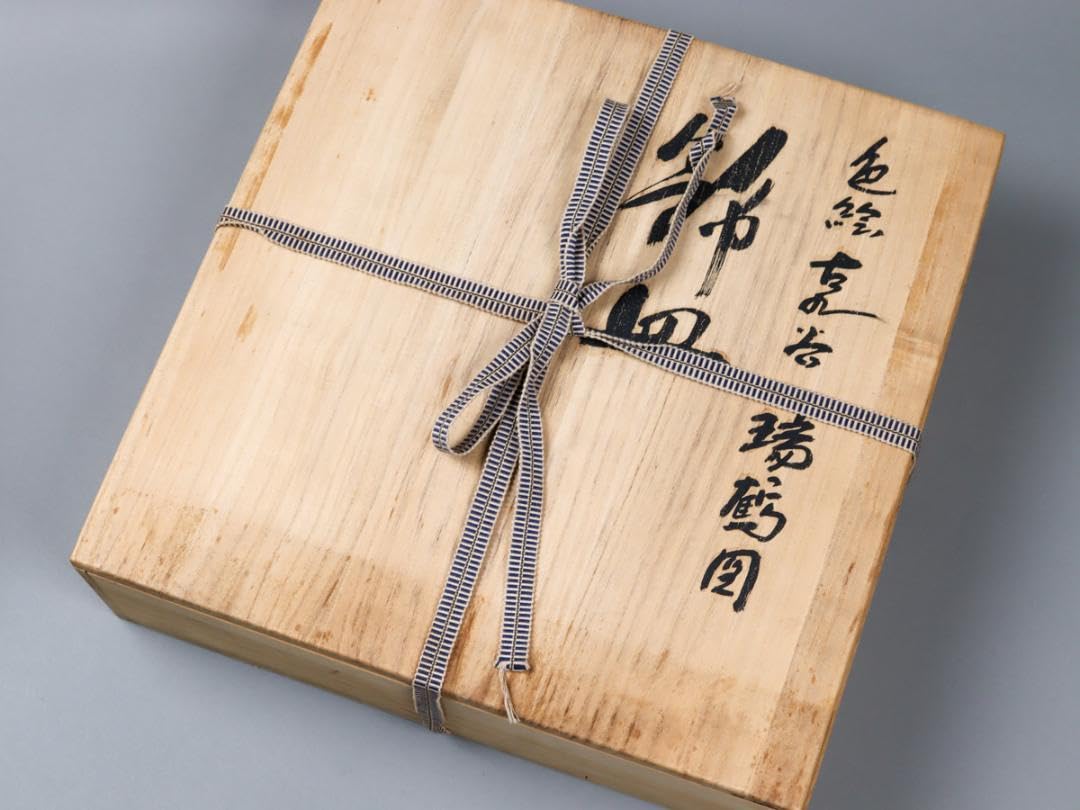 色絵古九谷瑞鶴図
飾皿